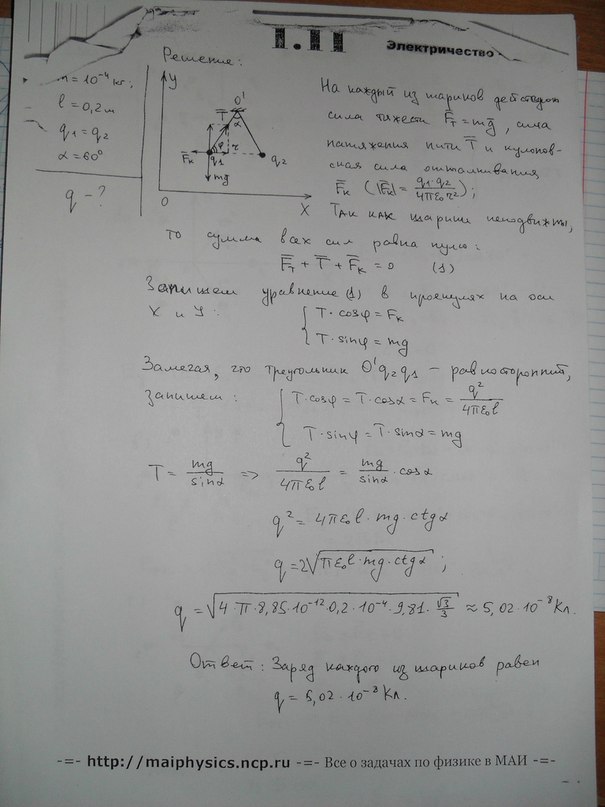 1.11
Электричество
Решение:
m = 10⁻⁴ кг;
l = 0,2 м
q₁ = q₂
α = 60°
q - ?
Y
O'
T̅
α
F̅к
φ
r
q₁
q₂
mg̅
O
X
На каждый из шариков действуют
сила тяжести F̅т = mg̅, сила
натяжения нити T̅ и кулонов-
ская сила отталкивания
F̅к (|F̅к| = q₁·q₂/4πε₀r²);
Так как шарики неподвижны,
то сумма всех сил равна нулю:
F̅т + T̅ + F̅к = 0 (1)
Запишем уравнение (1) в проекциях на оси
X и Y: { T · cosφ = Fк
T · sinφ = mg
Замечая, что треугольник O'q₂q₁ – равносторонний,
запишем: { T·cosφ = T·cosα = Fк = q²/4πε₀l
T·sinφ = T·sinα = mg
T = mg/sinα => q²/4πε₀l = mg/sinα · cosα
q² = 4πε₀l · mg · ctgα
q = 2√(πε₀l·mg·ctgα) ;
q = √(4·π·8,85·10⁻¹²·0,2·10⁻⁴·9,81·√3/3) ≈ 5,02·10⁻⁸ Кл.
Ответ: Заряд каждого из шариков равен
q = 5,02·10⁻⁸ Кл.
-=- http://maiphysics.ncp.ru -=- Все о задачах по физике в МАИ -=-